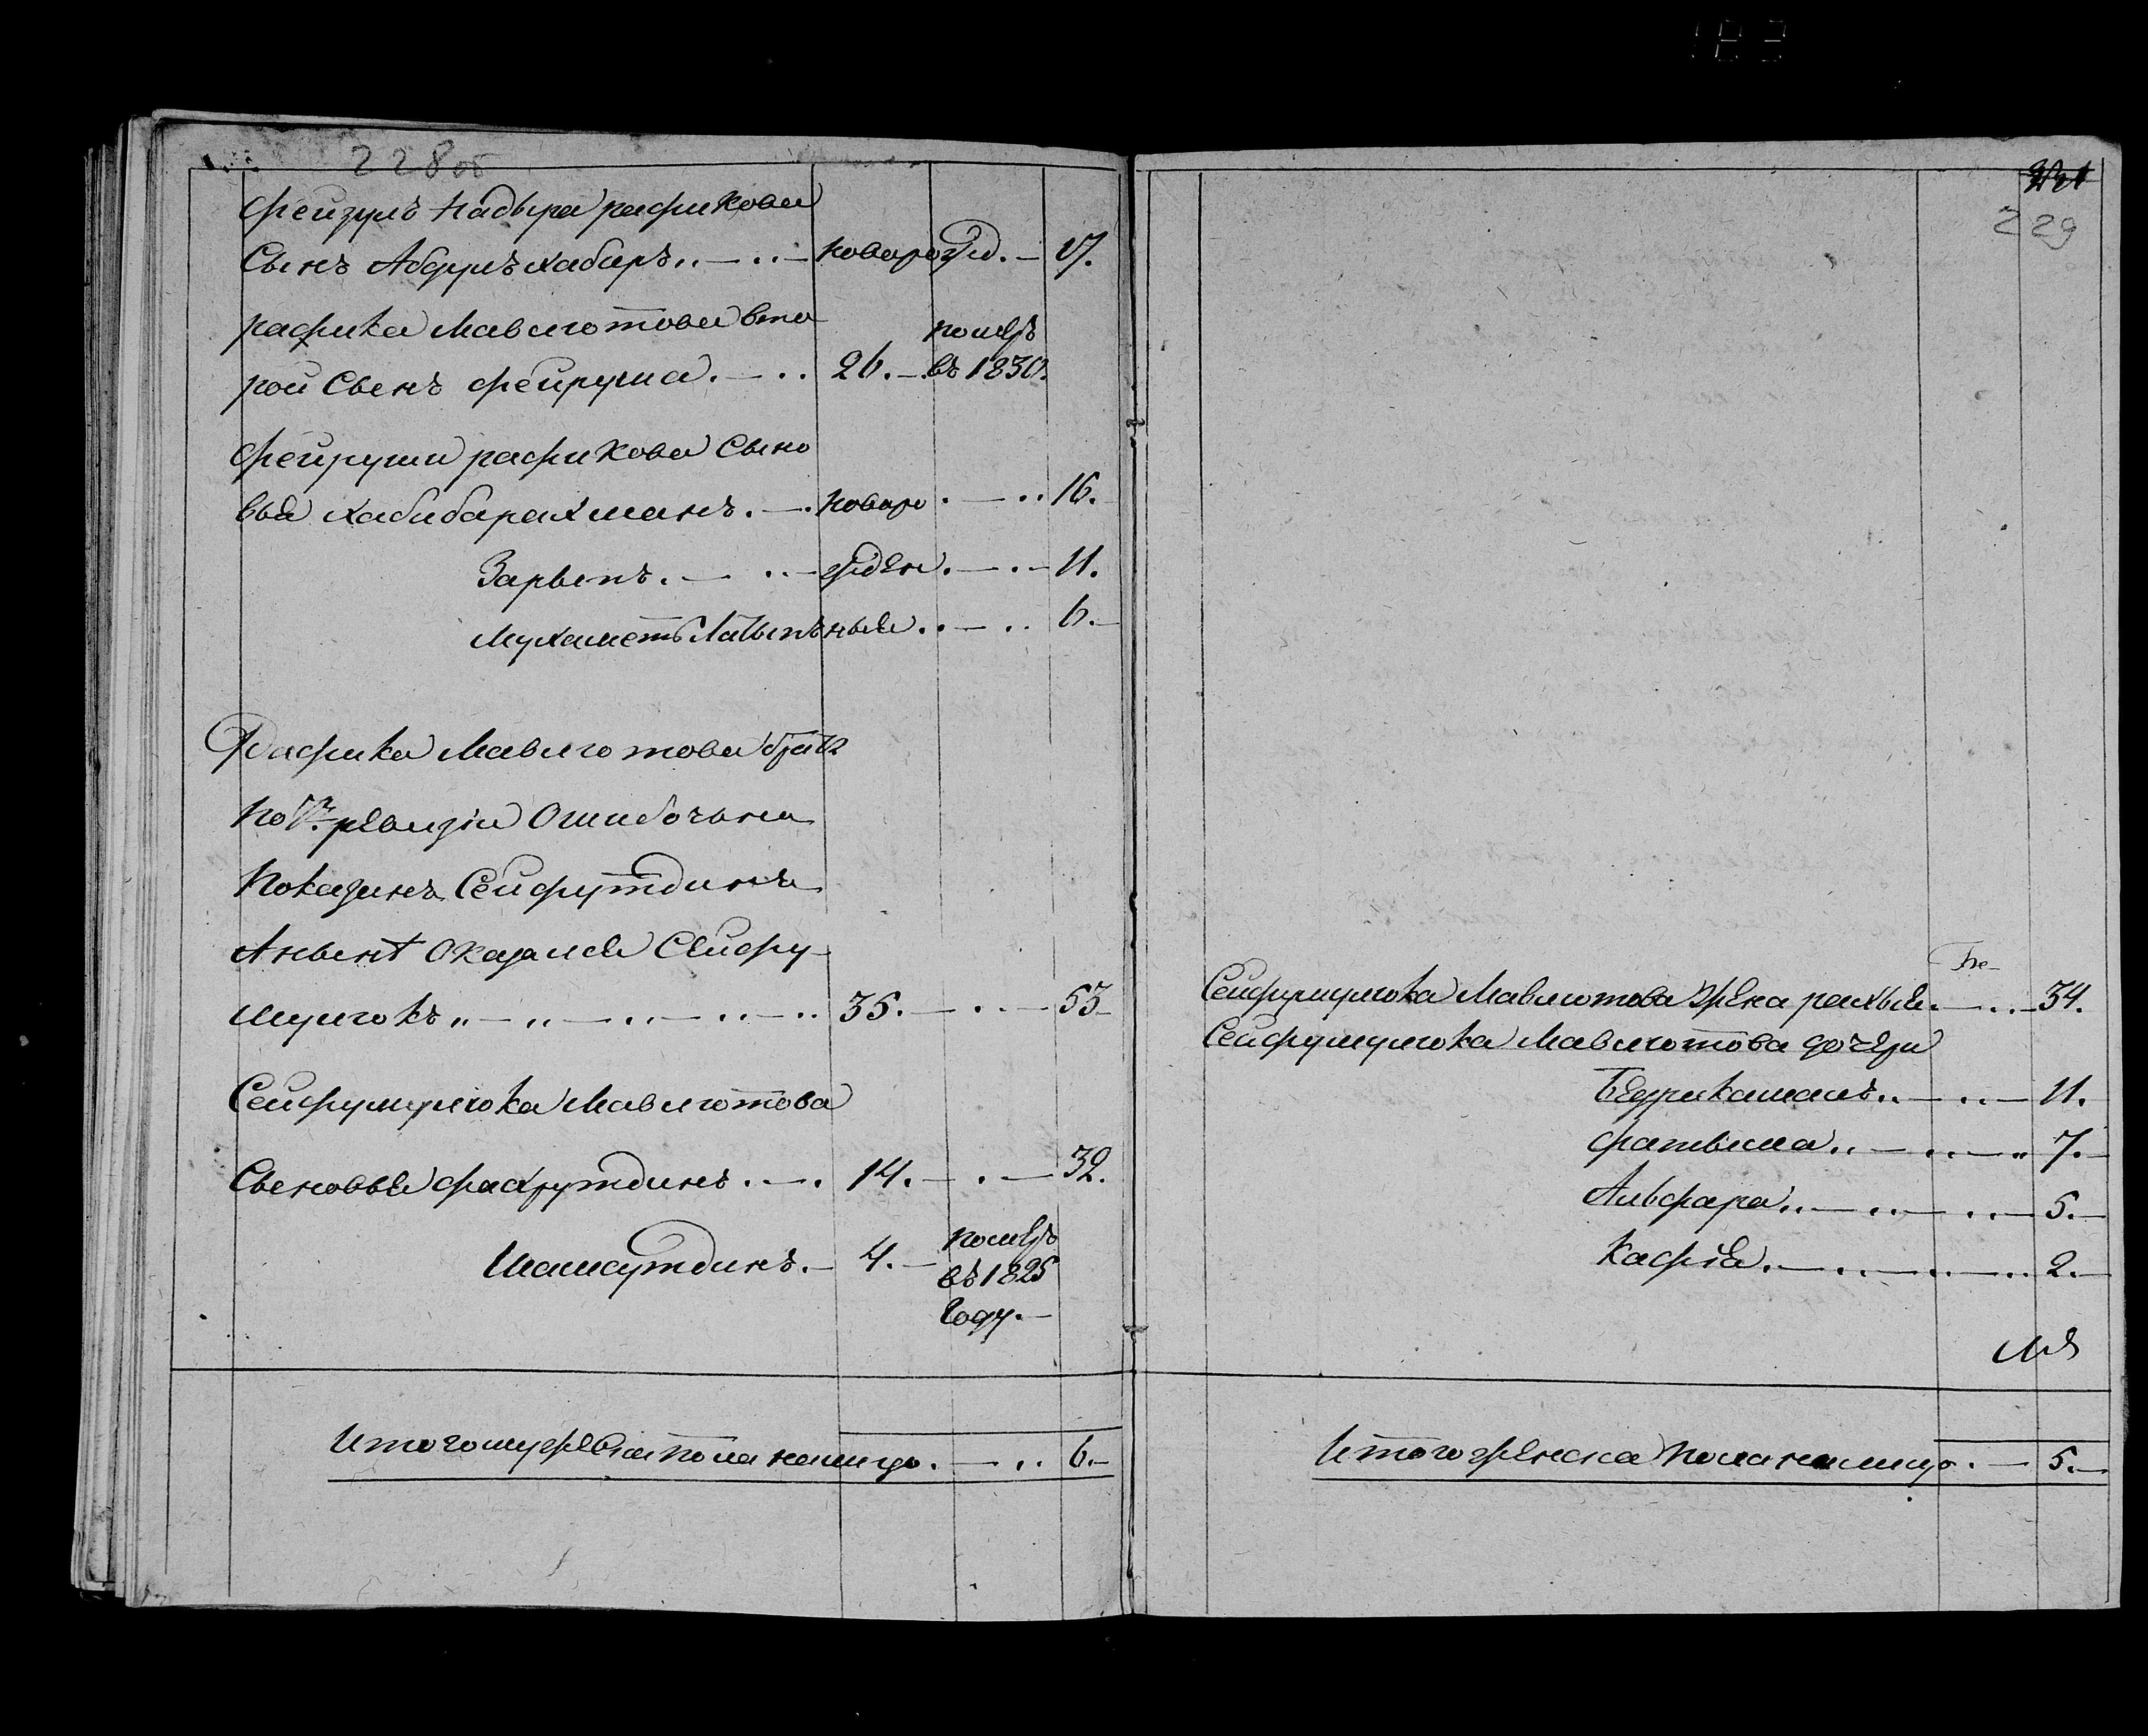 228 об
Фейзулъ Кадыра рафикова
Сынъ Абдулъ хабаръ новорожд. 17.
рафика Мавлютова вто
рой Сынъ фейруша 26. померъ въ 1830.
Фейруши рафикова Сыно
вья хабибарахманъ новоро 16.
Зарыпъ жден 11.
Мухаметъ Латыпъ ные 6.
Рафика Мавлютова братъ
по 7й ревизіи Ошибочьна
Показанъ Сейфутдинъ
Аныня Оказался Сейфу-
мулюкъ 35. 53
Сейфумулюка Мавлютова
Сыновья фахрутдинъ 14. 32.
Шамсутдинъ 4. померъ
въ 1825
Году.
Итого мужеска пола налицо 6.
229
Сейфумулюка Мавлютова жена рахыя 34.
Сейфумулюка Мавлютова дочери
Бедрикамалъ 11.
фатыма 7.
Альфара 5.
Кафія 2.
Итого женска пола налицо 5.